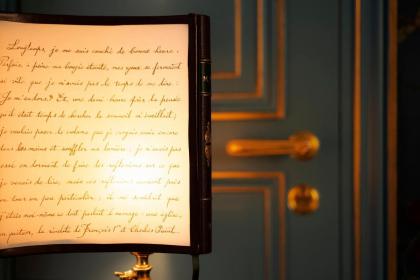 Longtemps, je me suis couché de bonne heure.
Parfois, à peine ma bougie éteinte, mes yeux se fermaient
si vite que je n'avais pas le temps de me dire :
"Je m'endors." Et, une demi-heure après, la pensée
qu'il était temps de chercher le sommeil m'éveillait ;
je voulais poser le volume que je croyais avoir encore
dans les mains et souffler ma lumière ; je n'avais pas
cessé en dormant de faire des réflexions sur ce que
je venais de lire, mais ces réflexions avaient pris
un tour un peu particulier ; il me semblait que
j'étais moi-même ce dont parlait l'ouvrage : une église,
un quatuor, la rivalité de François Ier et Charles Quint.